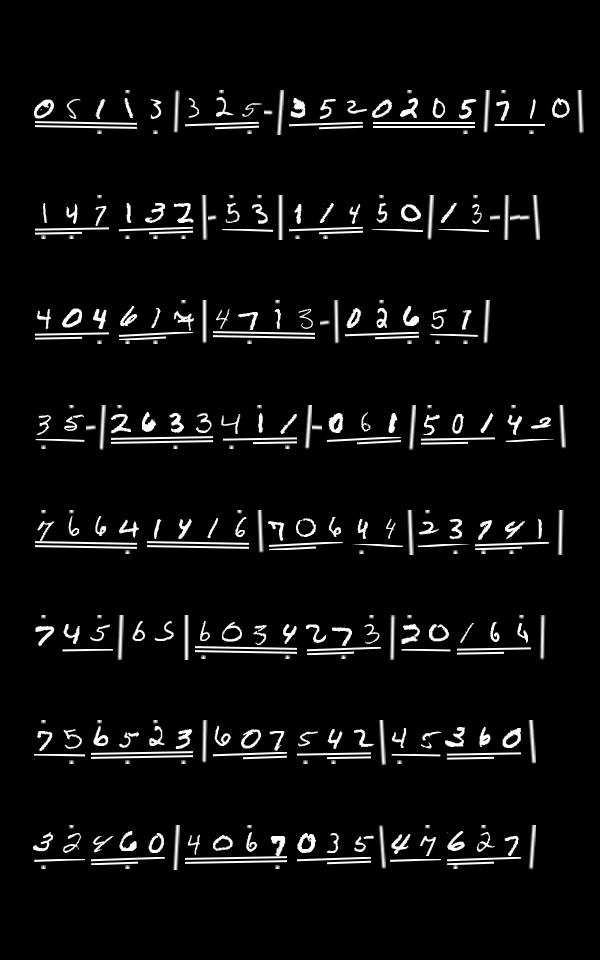 05113|325-|3520205|710|
147132|-53|11450|13-|-|
404617|4713-|02651|
35-|2633411|-061|50142|
76641416|70644|23741|
745|65|6034273|20164|
756523|607542|45360|
32460|4067035|47627|